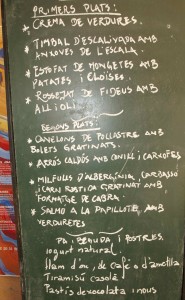 PRIMERS PLATS:
* CREMA DE VERDURES.
* TIMBAL D'ESCALIVADA AMB
ANXOVES DE L'ESCALA.
* ESTOFAT DE MONGETES AMB
PATATES I CLOÏSES.
* ROSSEJAT DE FIDEUS AMB
ALLIOLI.
SEGONS PLATS:
* CANELONS DE POLLASTRE AMB
BOLETS GRATINATS.
* ARRÒS CALDÓS AMB CONILL I CARXOFES
* MILFULLS D'ALBERGÍNIA, CARBASSÓ
I CARN RUSTIDA GRATINAT AMB
FORMATGE DE CABRA.
* SALMÓ A LA PAPILLOTE AMB
VERDURETES
PA, BEGUDA I POSTRES.
Iogurt natural
Flam d'ou, de cafè o d'ametlla
Tiramisú casolà
Pastís de xocolata i nous